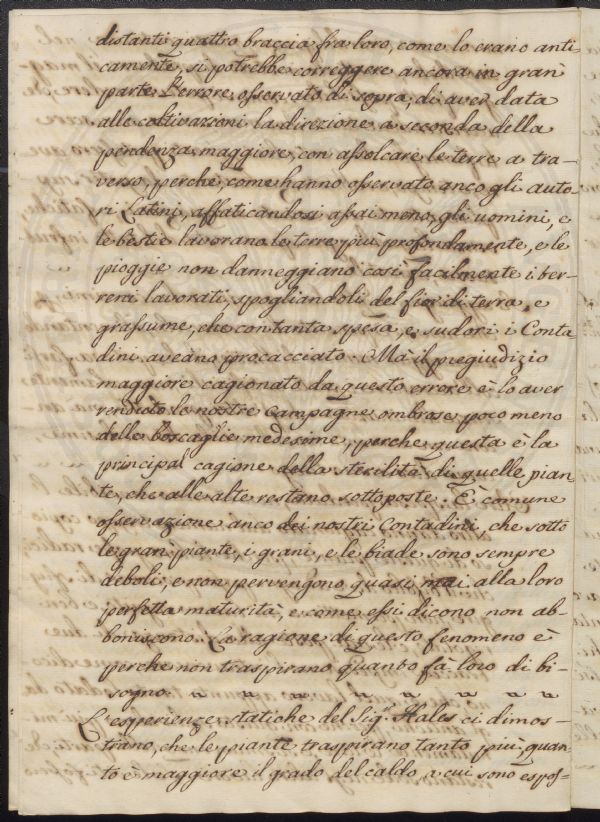 distanti quattro braccia fra loro, come lo erano anti-
camente, si potrebbe correggere ancora in gran
parte l'errore osservato di sopra, di aver data
alle coltivazioni la direzione a seconda della
pendenza maggiore, con assolcare le terre a tra-
verso, perche, come hanno osservato anco gli auto-
ri Latini, affaticandosi assai meno, gli uomini, e
le bestie lavorano le terre più profondamente, e le
pioggie non danneggiano così facilmente i ter-
reni lavorati, spogliandoli del fior di terra, e
grassume, che con tanta spesa, e sudori i Conta
dini aveano procacciato. Mà il pregiudizio
maggiore cagionato da questo errore è lo aver
renduto le nostre campagne ombrose poco meno
delle boscaglie medesime, perche questa è la
principal cagione della sterilità di quelle pian
te, che alle alte restano sottoposte. È comune
osservazione anco dei nostri Contadini, che sotto
le gran piante, i grani, e le biade sono sempre
deboli, e non pervengono quasi mai alla loro
perfetta maturità, e come essi dicono non ab-
boniscono. La ragione di questo fenomeno è
perche non traspirano quanto fà loro di bi-
sogno
L'esperienze statiche del Sig.r Hales ci dimos-
trano, che le piante traspirano tanto più, quan-
to è maggiore il grado del caldo, a cui sono espos-